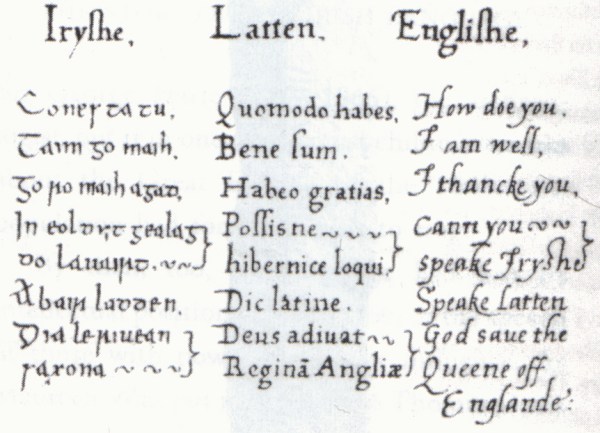 Iryshe, Latten. Englishe,
Cones ta tu, Quomodo habes, How doe you
Taim go maih, Bene sum. I am well,
Go ro maih agad, Habeo gratias, I thancke you,
In eol dut gealag Possis ne Cann you
do lauairt hibernice loqui, speake Iryshe
Abair ladden Dic latine. Speake Latten
Dia le riuean Deus adiuat God save the
sasona Reginā Angliæ Queene off
Englande: